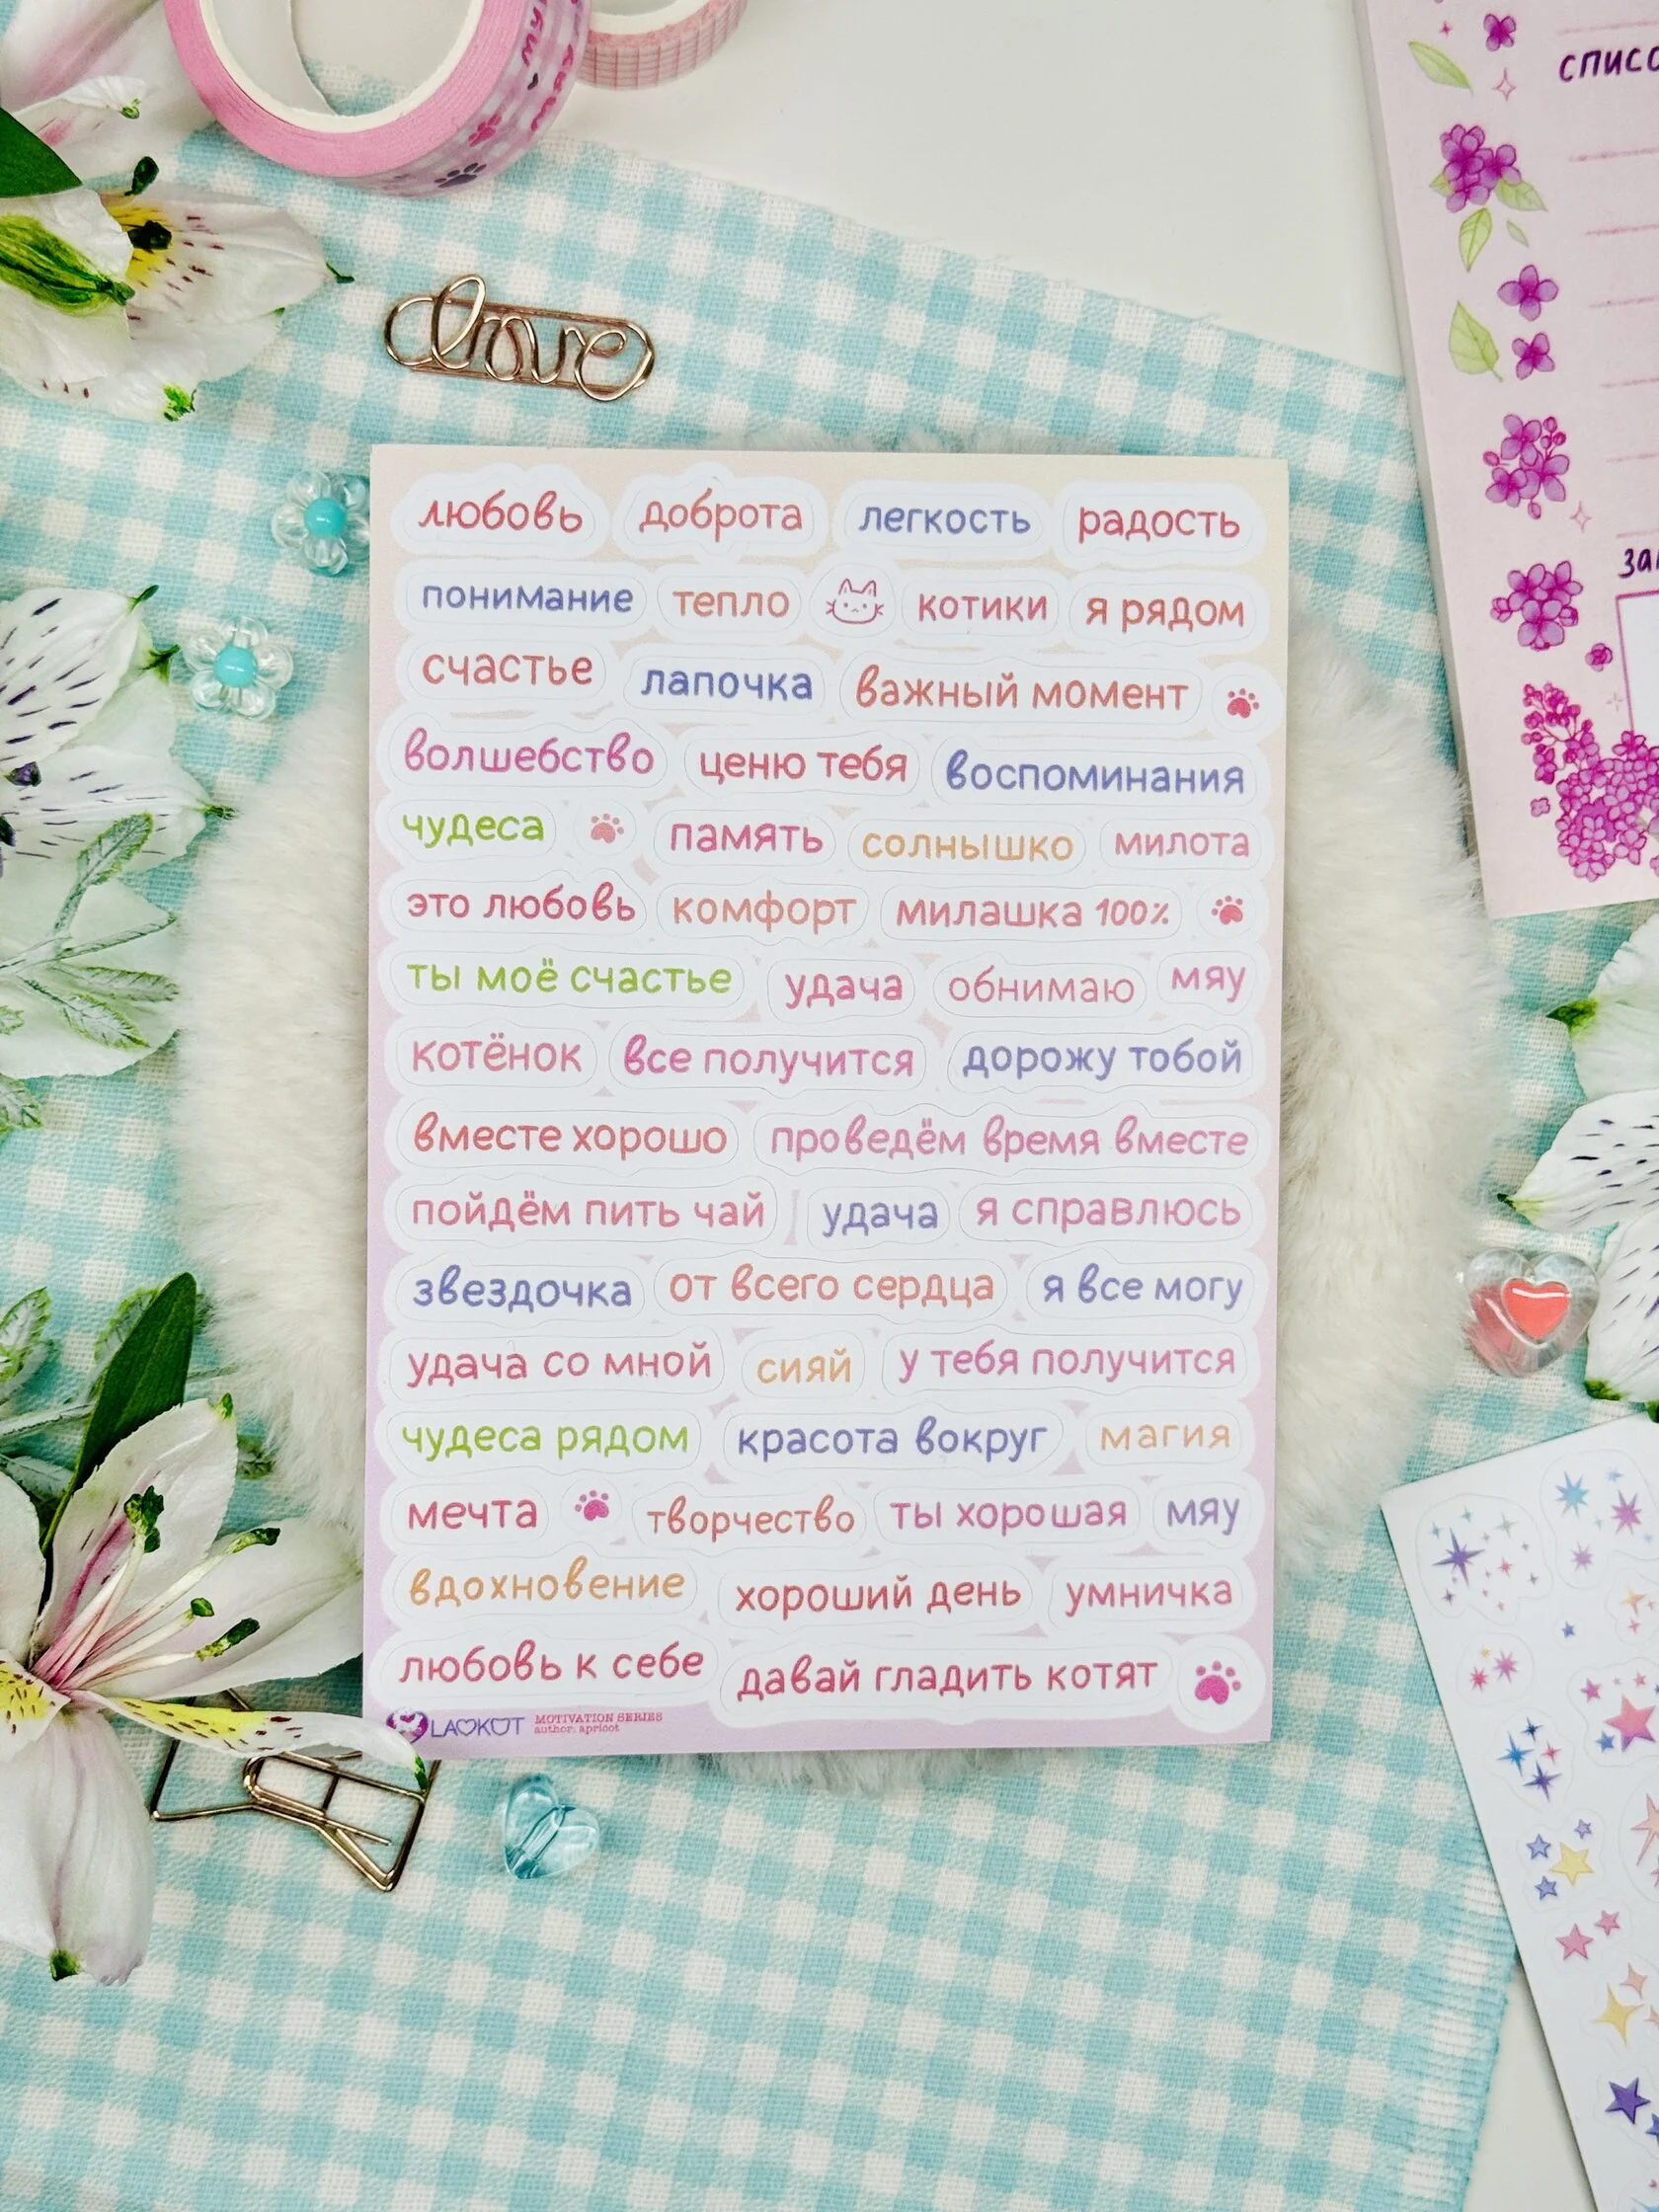 love
списо
любовь доброта легкость радость
понимание тепло котики я рядом
счастье лапочка важный момент
волшебство ценю тебя воспоминания
чудеса память солнышко милота
это любовь комфорт милашка 100%
ты моё счастье удача обнимаю мяу
котёнок все получится дорожу тобой
вместе хорошо проведём время вместе
пойдём пить чай удача я справлюсь
звездочка от всего сердца я все могу
удача со мной сияй у тебя получится
чудеса рядом красота вокруг магия
мечта творчество ты хорошая мяу
вдохновение хороший день умничка
любовь к себе давай гладить котят
LAOKOT MOTIVATION SERIES
author: apricot